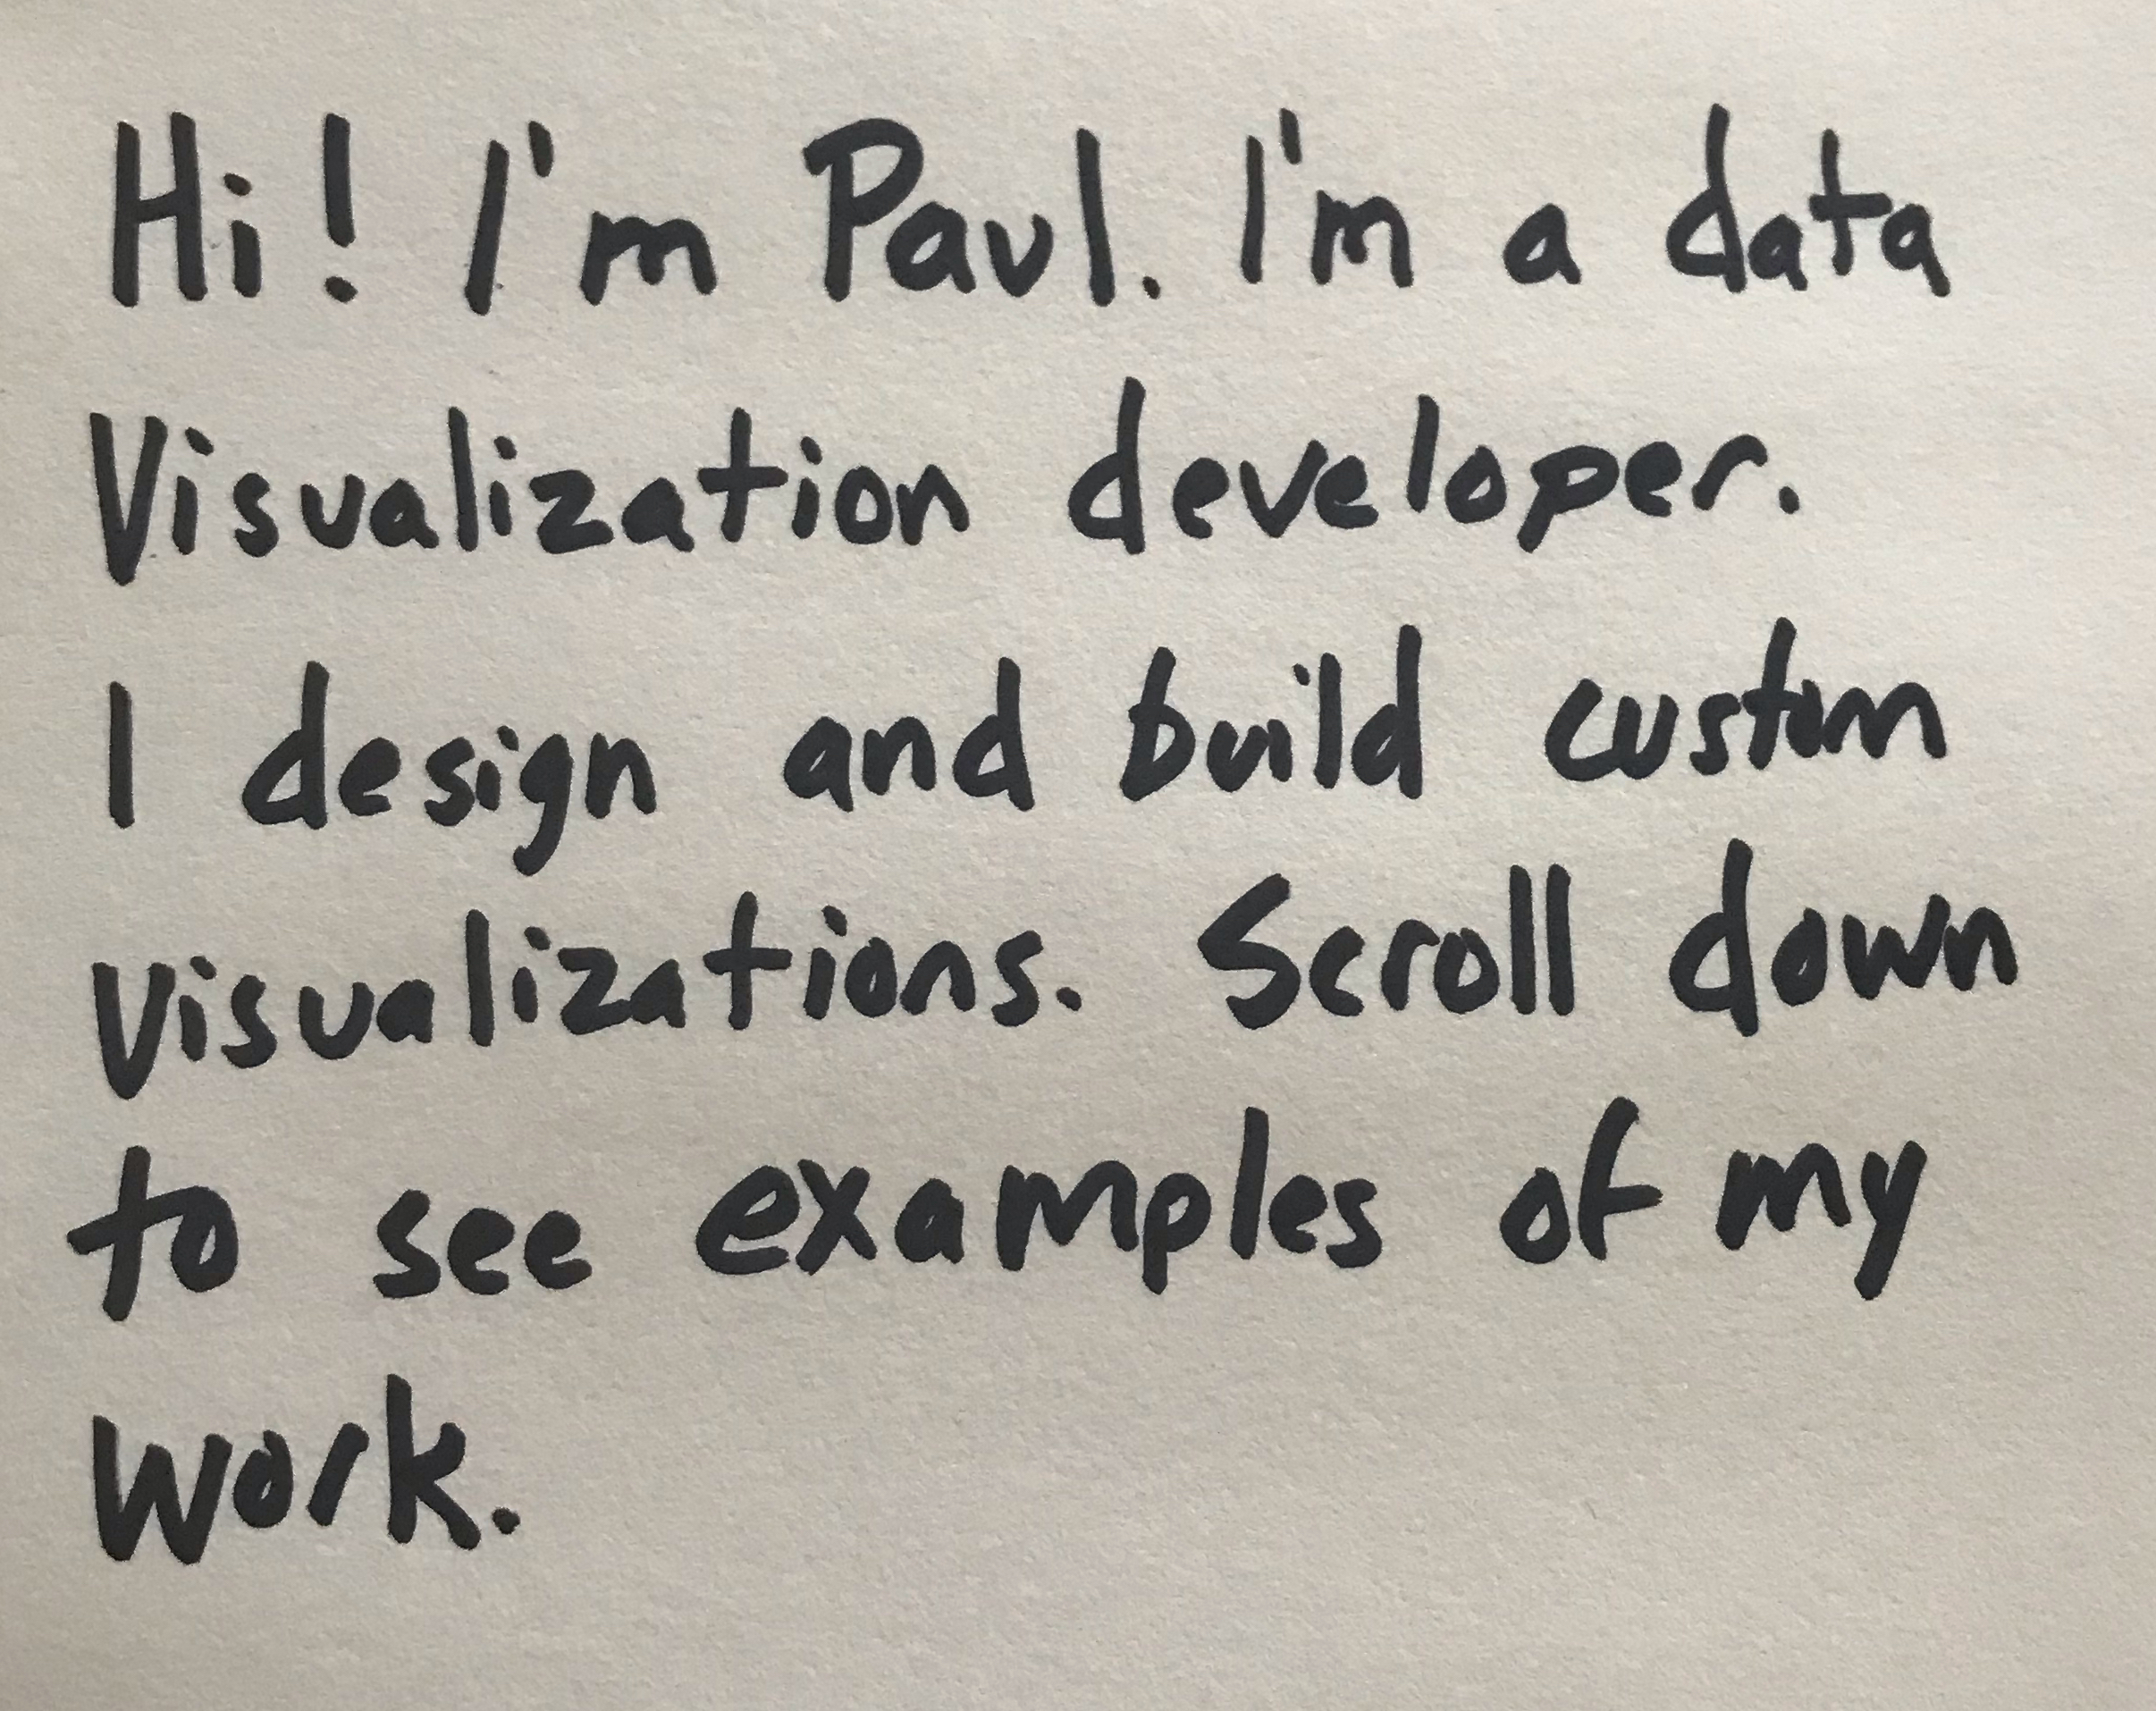 Hi! I'm Paul. I'm a data
Visualization developer.
I design and build custom
visualizations. Scroll down
to see examples of my
work.